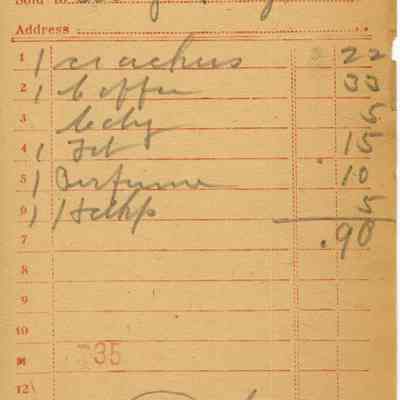 Sold to
Address
1 1 crackers 22
2 1 Coffee 33
3 5
4 1 15
5 1 Perfume 10
6 1 5
7 .90
8
9
10
11 35
12